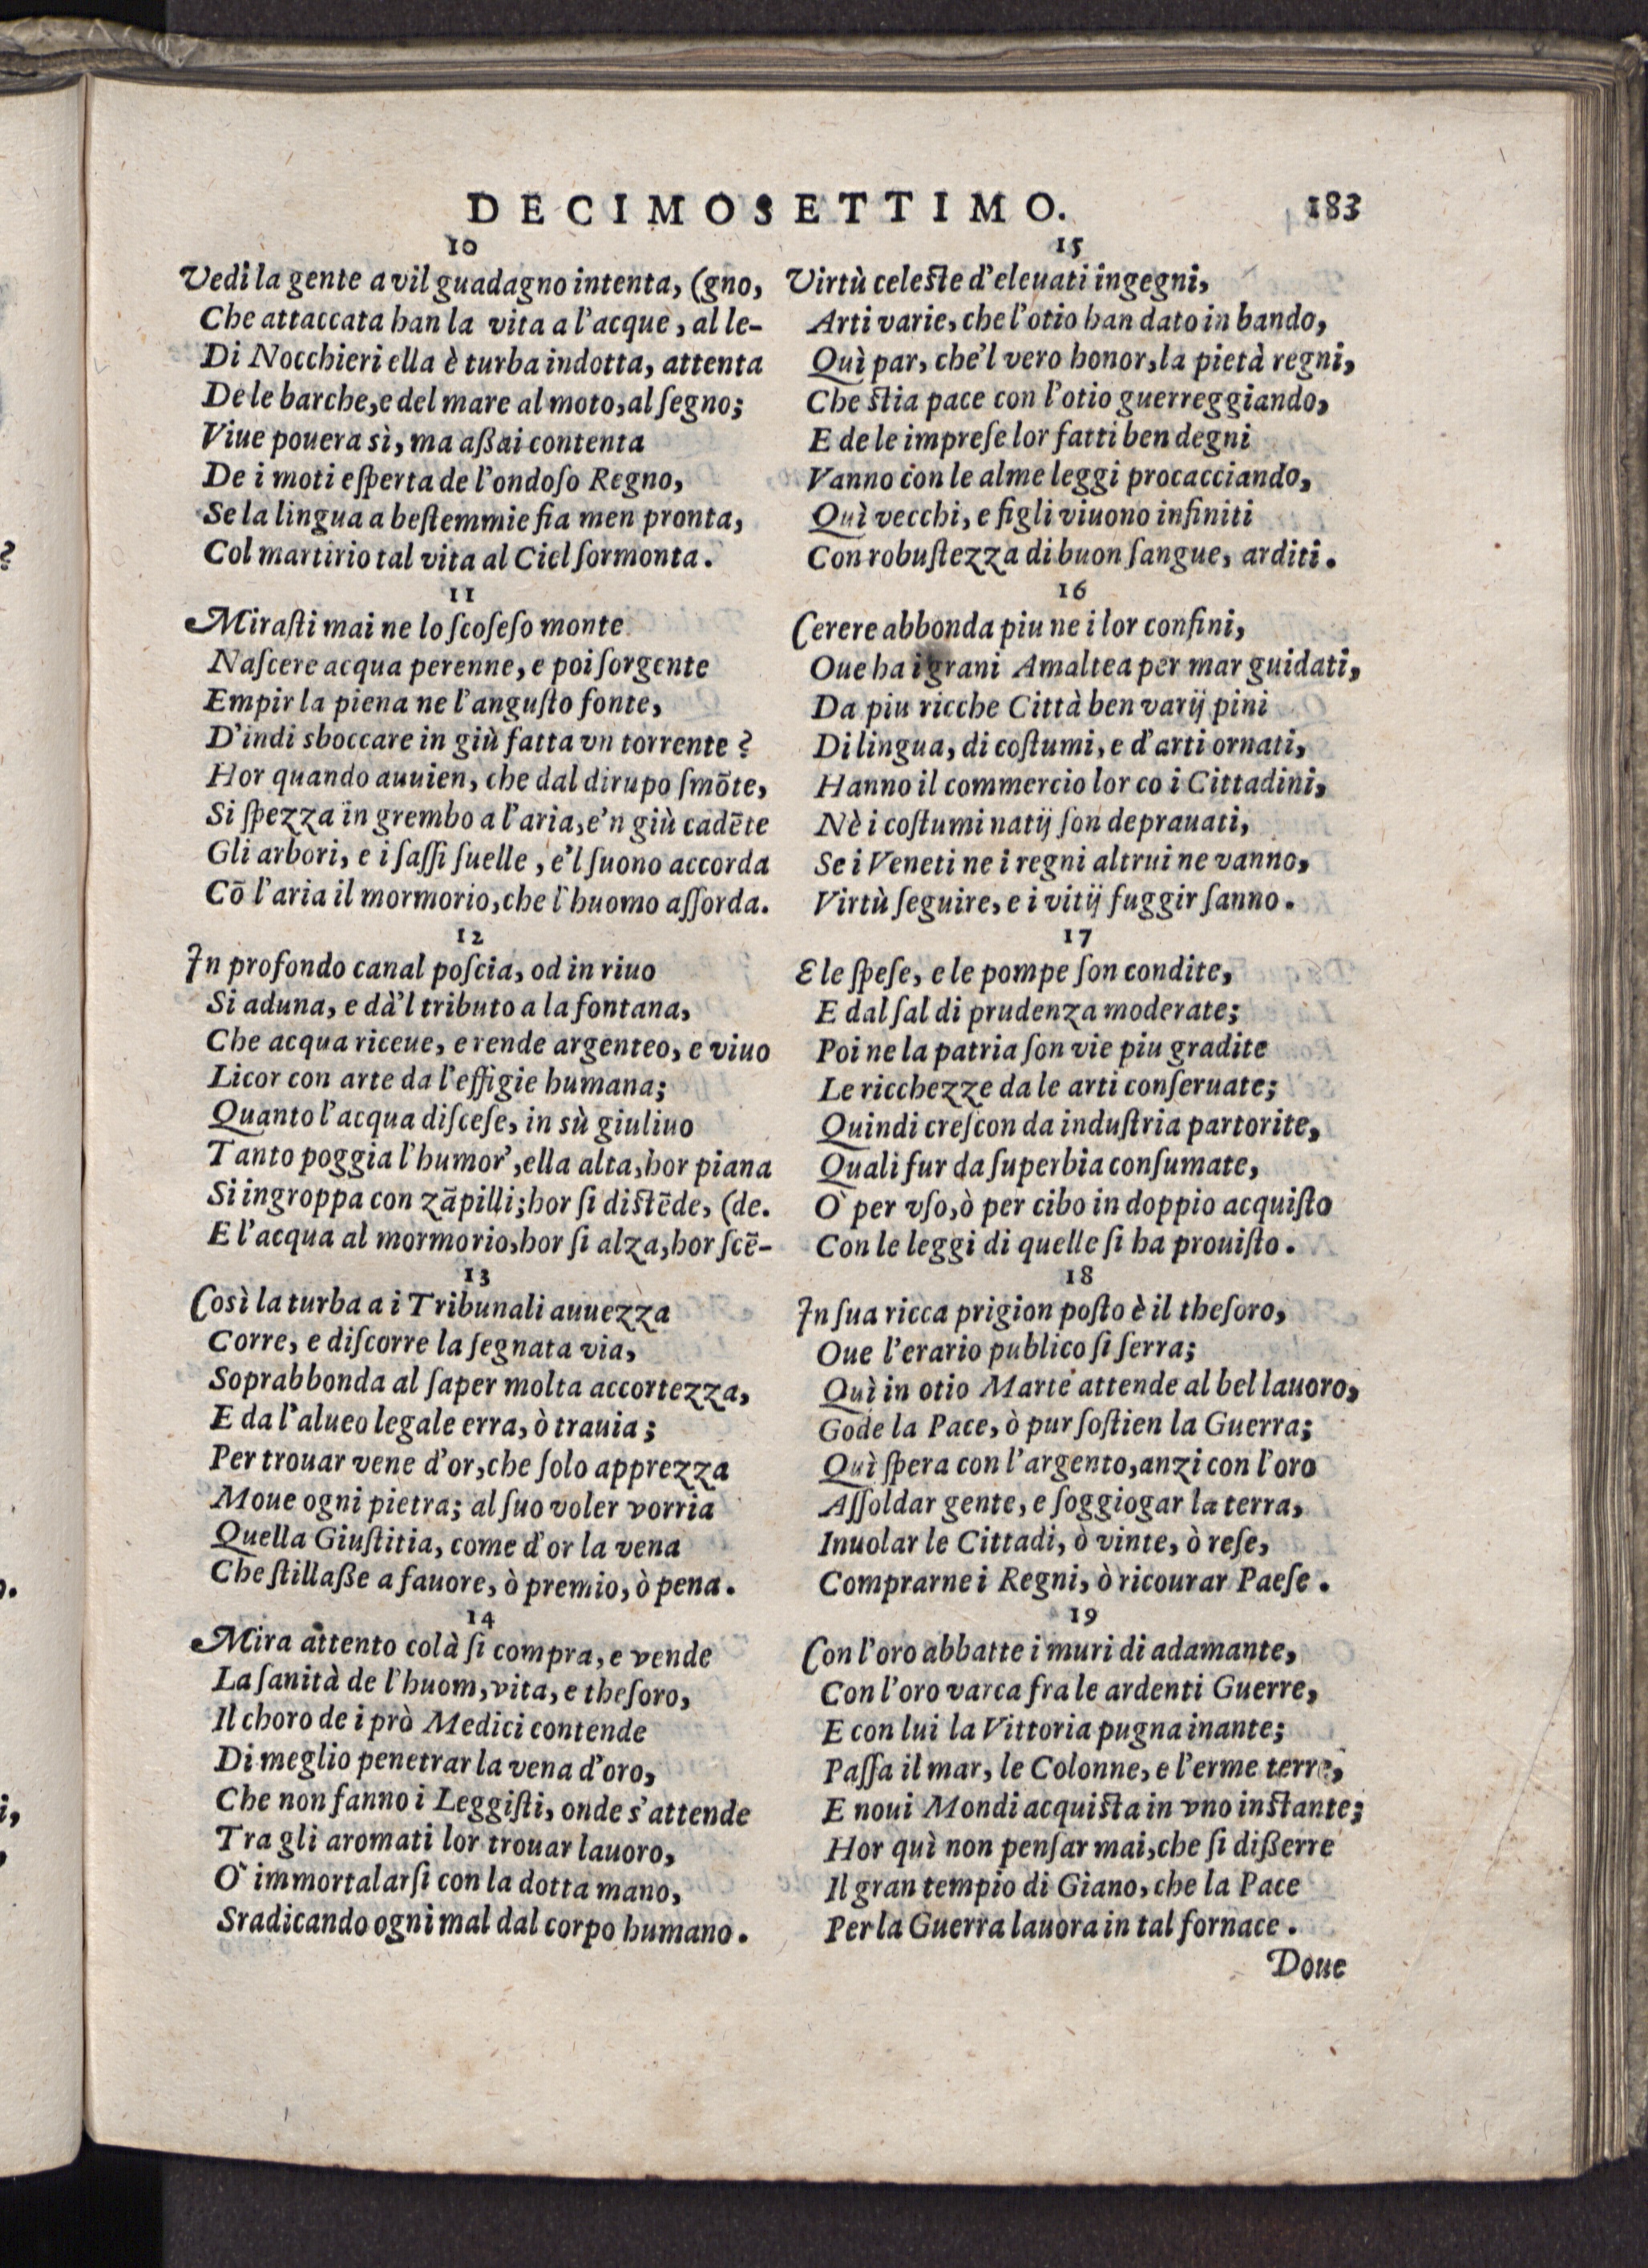 DECIMOSETTIMO. 183
10
Vedi la gente a vil guadagno intenta, (gno,
Che attaccata han la vita a l'acque, al le-
Di Nocchieri ella è turba indotta, attenta
De le barche, e del mare al moto, al ſegno;
Viue pouera sì, ma aßai contenta
De i moti eſperta de l'ondoſo Regno,
Se la lingua a beſtemmie fia men pronta,
Col martirio tal vita al Ciel ſormonta.
11
Miraſti mai ne lo ſcoſeſo monte
Naſcere acqua perenne, e poi ſorgente
Empir la piena ne l'anguſto fonte,
D'indi sboccare in giù fatta vn torrente?
Hor quando auuien, che dal dirupo ſmōte,
Si ſpezza in grembo a l'aria, e'n giù cadēte
Gli arbori, e i ſaſſi ſuelle, e'l ſuono accorda
Cō l'aria il mormorio, che l'huomo aſſorda.
12
In profondo canal poſcia, od in riuo
Si aduna, e dà'l tributo a la fontana,
Che acqua riceue, e rende argenteo, e viuo
Licor con arte da l'effigie humana;
Quanto l'acqua diſceſe, in sù giuliuo
Tanto poggia l'humor, ella alta, hor piana
Si ingroppa con zāpilli; hor ſi diſtēde, (de.
E l'acqua al mormorio, hor ſi alza, hor ſcē-
13
Così la turba a i Tribunali auuezza
Corre, e diſcorre la ſegnata via,
Soprabbonda al ſaper molta accortezza,
E da l'alueo legale erra, ò trauia;
Per trouar vene d'or, che ſolo apprezza
Moue ogni pietra; al ſuo voler vorria
Quella Giuſtitia, come d'or la vena
Che ſtillaße a fauore, ò premio, ò pena.
14
Mira attento colà ſi compra, e vende
La ſanità de l'huom, vita, e theſoro,
Il choro de i prò Medici contende
Di meglio penetrar la vena d'oro,
Che non fanno i Leggiſti, onde s'attende
Tra gli aromati lor trouar lauoro,
O' immortalarſi con la dotta mano,
Sradicando ogni mal dal corpo humano.
15
Virtù celeſte d'eleuati ingegni,
Arti varie, che l'otio han dato in bando,
Quì par, che'l vero honor, la pietà regni,
Che ſtia pace con l'otio guerreggiando,
E de le impreſe lor fatti ben degni
Vanno con le alme leggi procacciando,
Quì vecchi, e figli viuono infiniti
Con robuſtezza di buon ſangue, arditi.
16
Cerere abbonda piu ne i lor confini,
Oue ha i grani Amaltea per mar guidati,
Da piu ricche Città ben varij pini
Di lingua, di coſtumi, e d'arti ornati,
Hanno il commercio lor co i Cittadini,
Nè i coſtumi natij ſon deprauati,
Se i Veneti ne i regni altrui ne vanno,
Virtù ſeguire, e i vitij fuggir ſanno.
17
E le ſpeſe, e le pompe ſon condite,
E dal ſal di prudenza moderate;
Poi ne la patria ſon vie piu gradite
Le ricchezze da le arti conſeruate;
Quindi creſcon da induſtria partorite,
Quali fur da ſuperbia conſumate,
O' per vſo, ò per cibo in doppio acquiſto
Con le leggi di quelle ſi ha prouiſto.
18
In ſua ricca prigion poſto è il theſoro,
Oue l'erario publico ſi ſerra;
Quì in otio Marte attende al bel lauoro,
Gode la Pace, ò pur ſoſtien la Guerra;
Quì ſpera con l'argento, anzi con l'oro
Aſſoldar gente, e ſoggiogar la terra,
Inuolar le Cittadi, ò vinte, ò reſe,
Comprarne i Regni, ò ricourar Paeſe.
19
Con l'oro abbatte i muri di adamante,
Con l'oro varca fra le ardenti Guerre,
E con lui la Vittoria pugna inante;
Paſſa il mar, le Colonne, e l'erme terre,
E noui Mondi acquiſta in vno inſtante;
Hor quì non penſar mai, che ſi dißerre
Il gran tempio di Giano, che la Pace
Per la Guerra lauora in tal fornace.
Doue